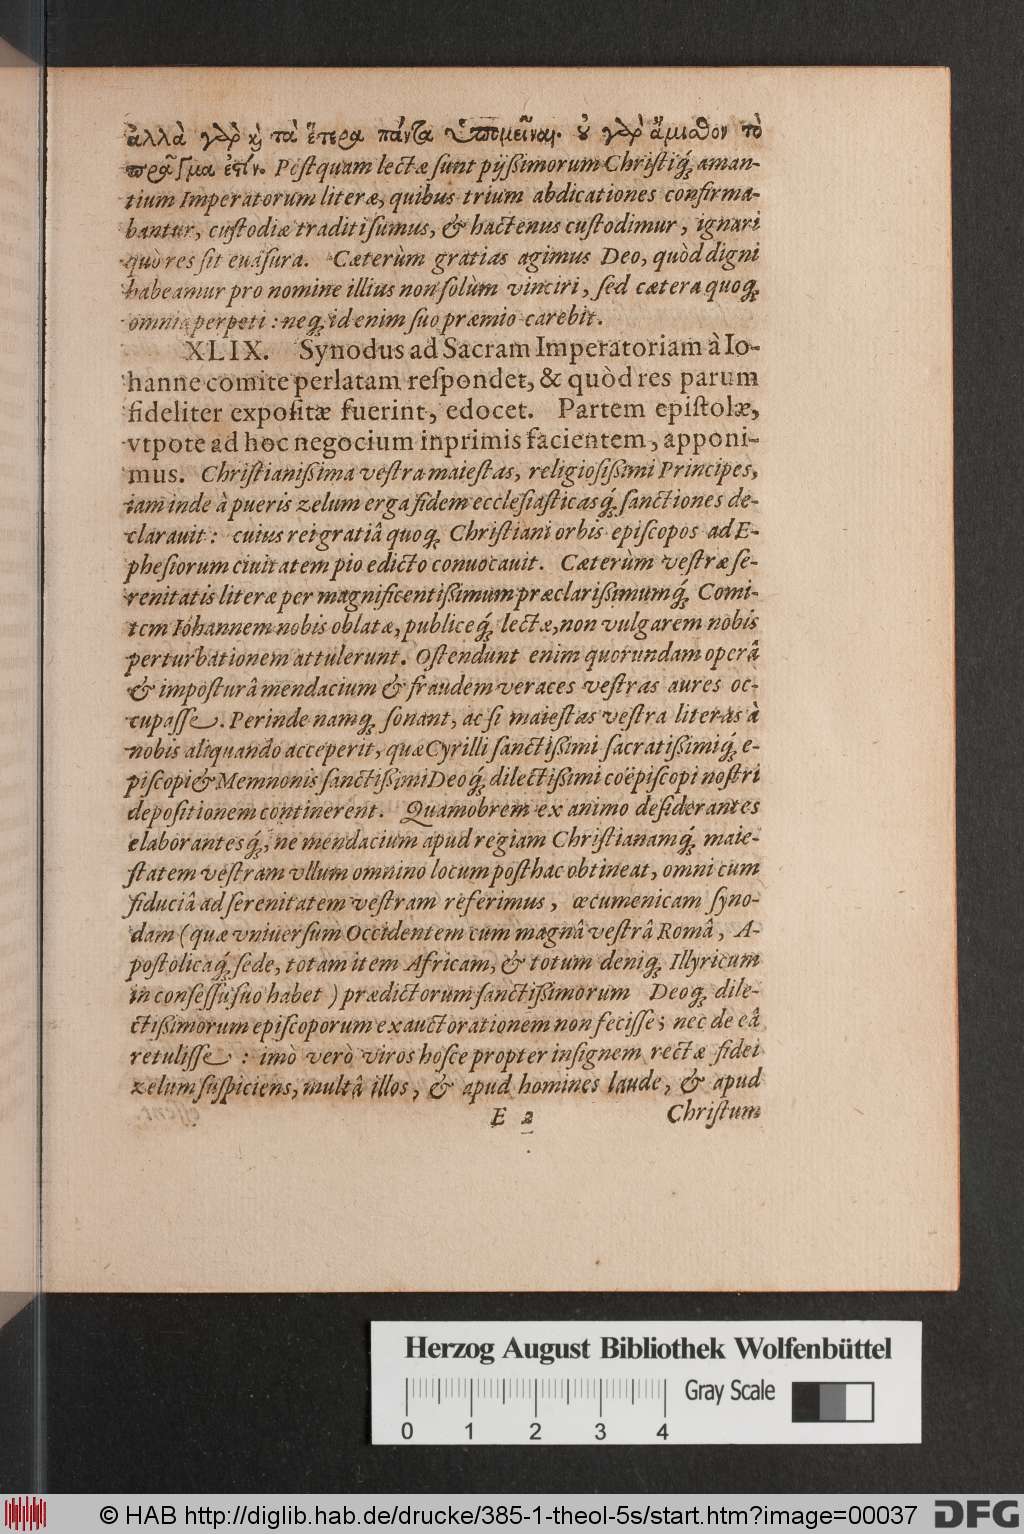 ἀλλὰ γὰρ καὶ τὰ ἕτερα πάντα ὑπομεῖναι. οὐ γὰρ ἄμισθον τὸ
πρᾶγμα ἐστίν. Poſtquam lectæ ſunt pijßimorum Chriſtiq́; aman-
tium Imperatorum literæ, quibus trium abdicationes confirma-
bantur, cuſtodiæ traditi ſumus, & hactenus cuſtodimur, ignari
quò res ſit euaſura. Cæterùm gratias agimus Deo, quòd digni
habeamur pro nomine illius non ſolùm vinciri, ſed cætera quoq;
omnia perpeti: neq; id enim ſuo præmio carebit.
XLIX. Synodus ad Sacram Imperatoriam à Io-
hanne comite perlatam reſpondet, & quòd res parum
fideliter expoſitæ fuerint, edocet. Partem epiſtolæ,
vtpote ad hoc negocium inprimis facientem, apponi-
mus. Chriſtianißima veſtra maieſtas, religioſißimi Principes,
iam inde à pueris zelum erga fidem eccleſiaſticasq́; ſanctiones de-
clarauit: cuius rei gratiâ quoq; Chriſtiani orbis epiſcopos ad E-
pheſiorum ciuitatem pio edicto conuocauit. Cæterùm veſtræ ſe-
renitatis literæ per magnificentißimum præclarißimumq́; Comi-
tem Iohannem nobis oblatæ, publiceq́; lectæ, non vulgarem nobis
perturbationem attulerunt. Oſtendunt enim quorundam operâ
& impoſturâ mendacium & fraudem veraces veſtras aures oc-
cupaſſe. Perinde namq; ſonant, ac ſi maieſtas veſtra literas à
nobis aliquando acceperit, quæ Cyrilli ſanctißimi ſacratißimiq́; e-
piſcopi & Memnonis ſanctißimi Deoq́; dilectißimi coëpiſcopi noſtri
depoſitionem continerent. Quamobrem ex animo deſiderantes
elaborantesq́;, ne mendacium apud regiam Chriſtianamq́; maie-
ſtatem veſtram vllum omnino locum poſthac obtineat, omni cum
fiduciâ ad ſerenitatem veſtram referimus, œcumenicam ſyno-
dum (quæ vniuerſum Occidentem cum magnâ veſtrâ Româ, A-
poſtolicaq́; ſede, totam item Africam, & totum deniq; Illyricum
in conſeſſu ſuo habet) prædictorum ſanctißimorum Deoq; dile-
ctißimorum epiſcoporum exauctorationem non feciſſe; nec de eâ
retuliſſe: imò verò viros hoſce propter inſignem rectæ fidei
zelum ſuſpiciens, multâ illos, & apud homines laude, & apud
E 2 Chriſtum
Herzog August Bibliothek Wolfenbüttel
Gray Scale
0 1 2 3 4
© HAB http://diglib.hab.de/drucke/385-1-theol-5s/start.htm?image=00037
DFG